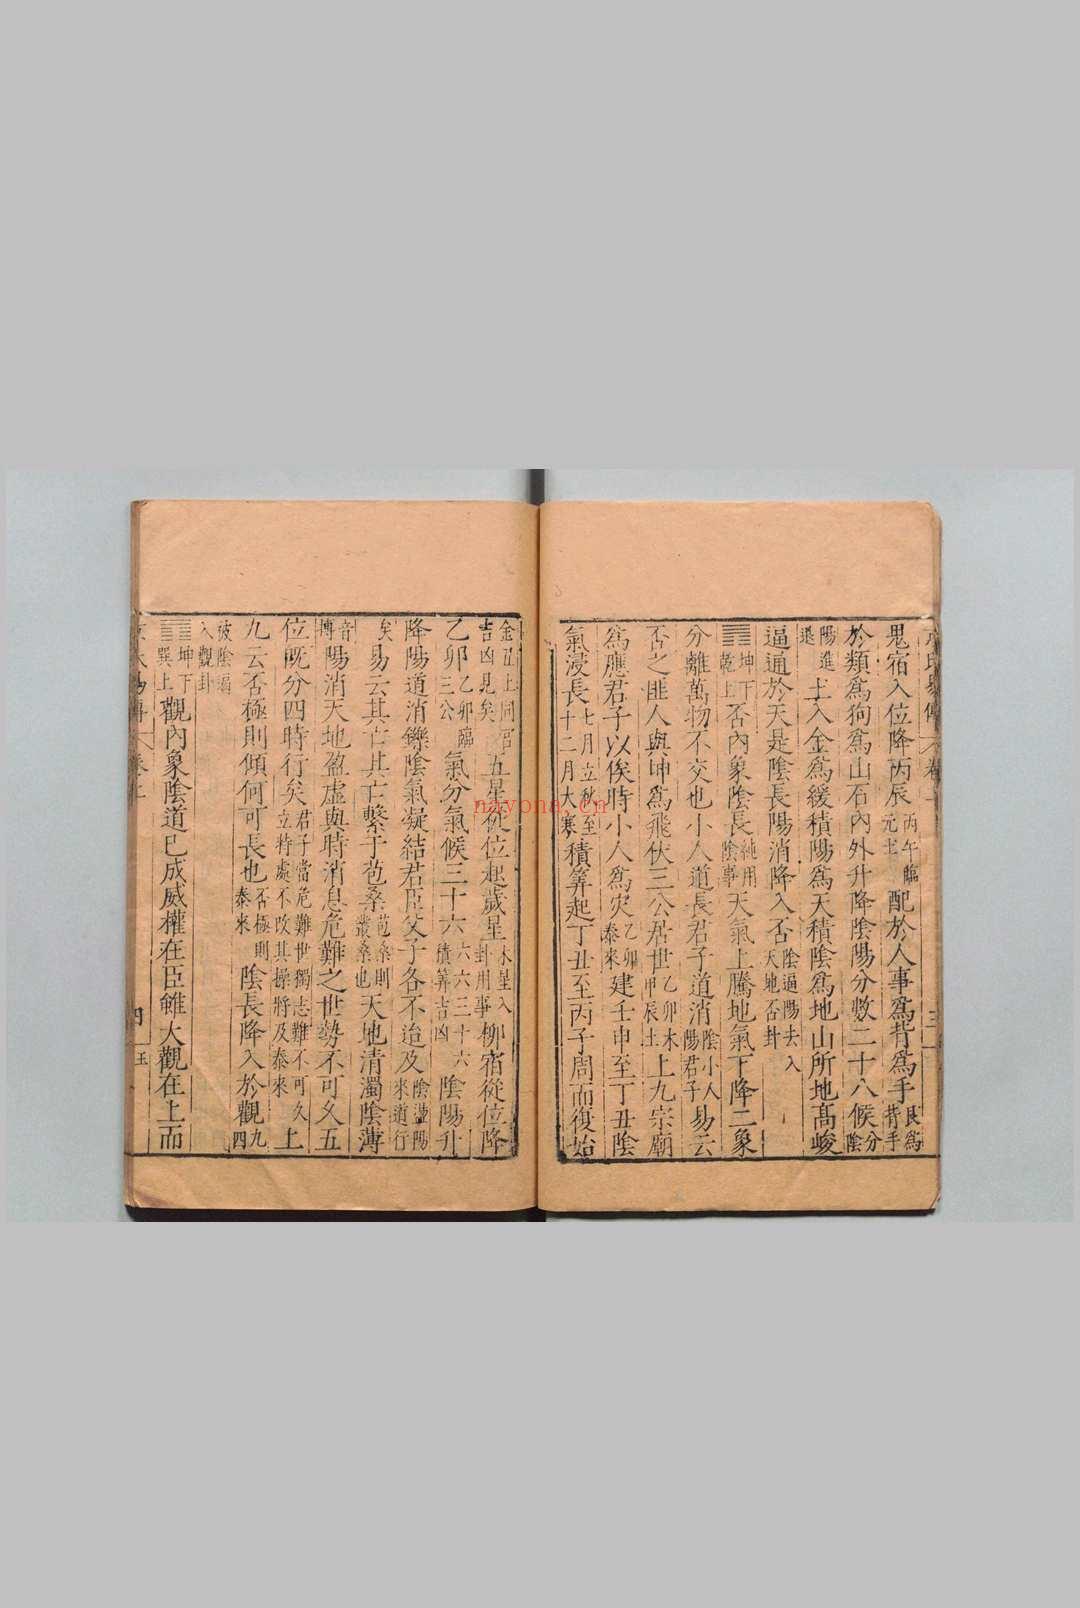 鬼宿入位降丙辰丙午臨元士配於人事爲背爲手艮爲背手
於類爲狗爲山石內外升降陰陽分數二十八候分陰
陽進退土入金爲緩積陽爲天積陰爲地山所地高峻
逼通於天是陰長陽消降入否陰逼陽去入天地否卦
䷋坤下乾上否內象陰長純用陰事天氣上騰地氣下降二象
分離萬物不交也小人道長君子道消陰小人陽君子易云
否之匪人與坤爲飛伏三公居世乙卯木甲辰土上九宗廟
爲應君子以俟時小人爲灾乙卯泰來建壬申至丁丑陰
氣浸長七月立秋至十二月大寒積筭起丁丑至丙子周而復始
金丑土同宮吉凶見矣五星從位起歲星木星入卦用事柳宿從位降
乙卯乙卯臨三公氣分氣候三十六六六三十六積筭吉凶陰陽升
降陽道消鑠陰氣凝結君臣父子各不迨及陰盪陽來道行
矣易云其亡其亡繫于苞桑苞桑則叢桑也天地清濁陰薄
音博陽消天地盈虛與時消息危難之世勢不可久五
位旣分四時行矣君子當危難世獨志難不可久立特處不改其操將及泰來上
九云否極則傾何可長也否極則泰來陰長降入於觀九四
被陰逼入觀卦
䷓坤下巽上觀內象陰道已成威權在臣雖大觀在上而
四
三
nayona.cn